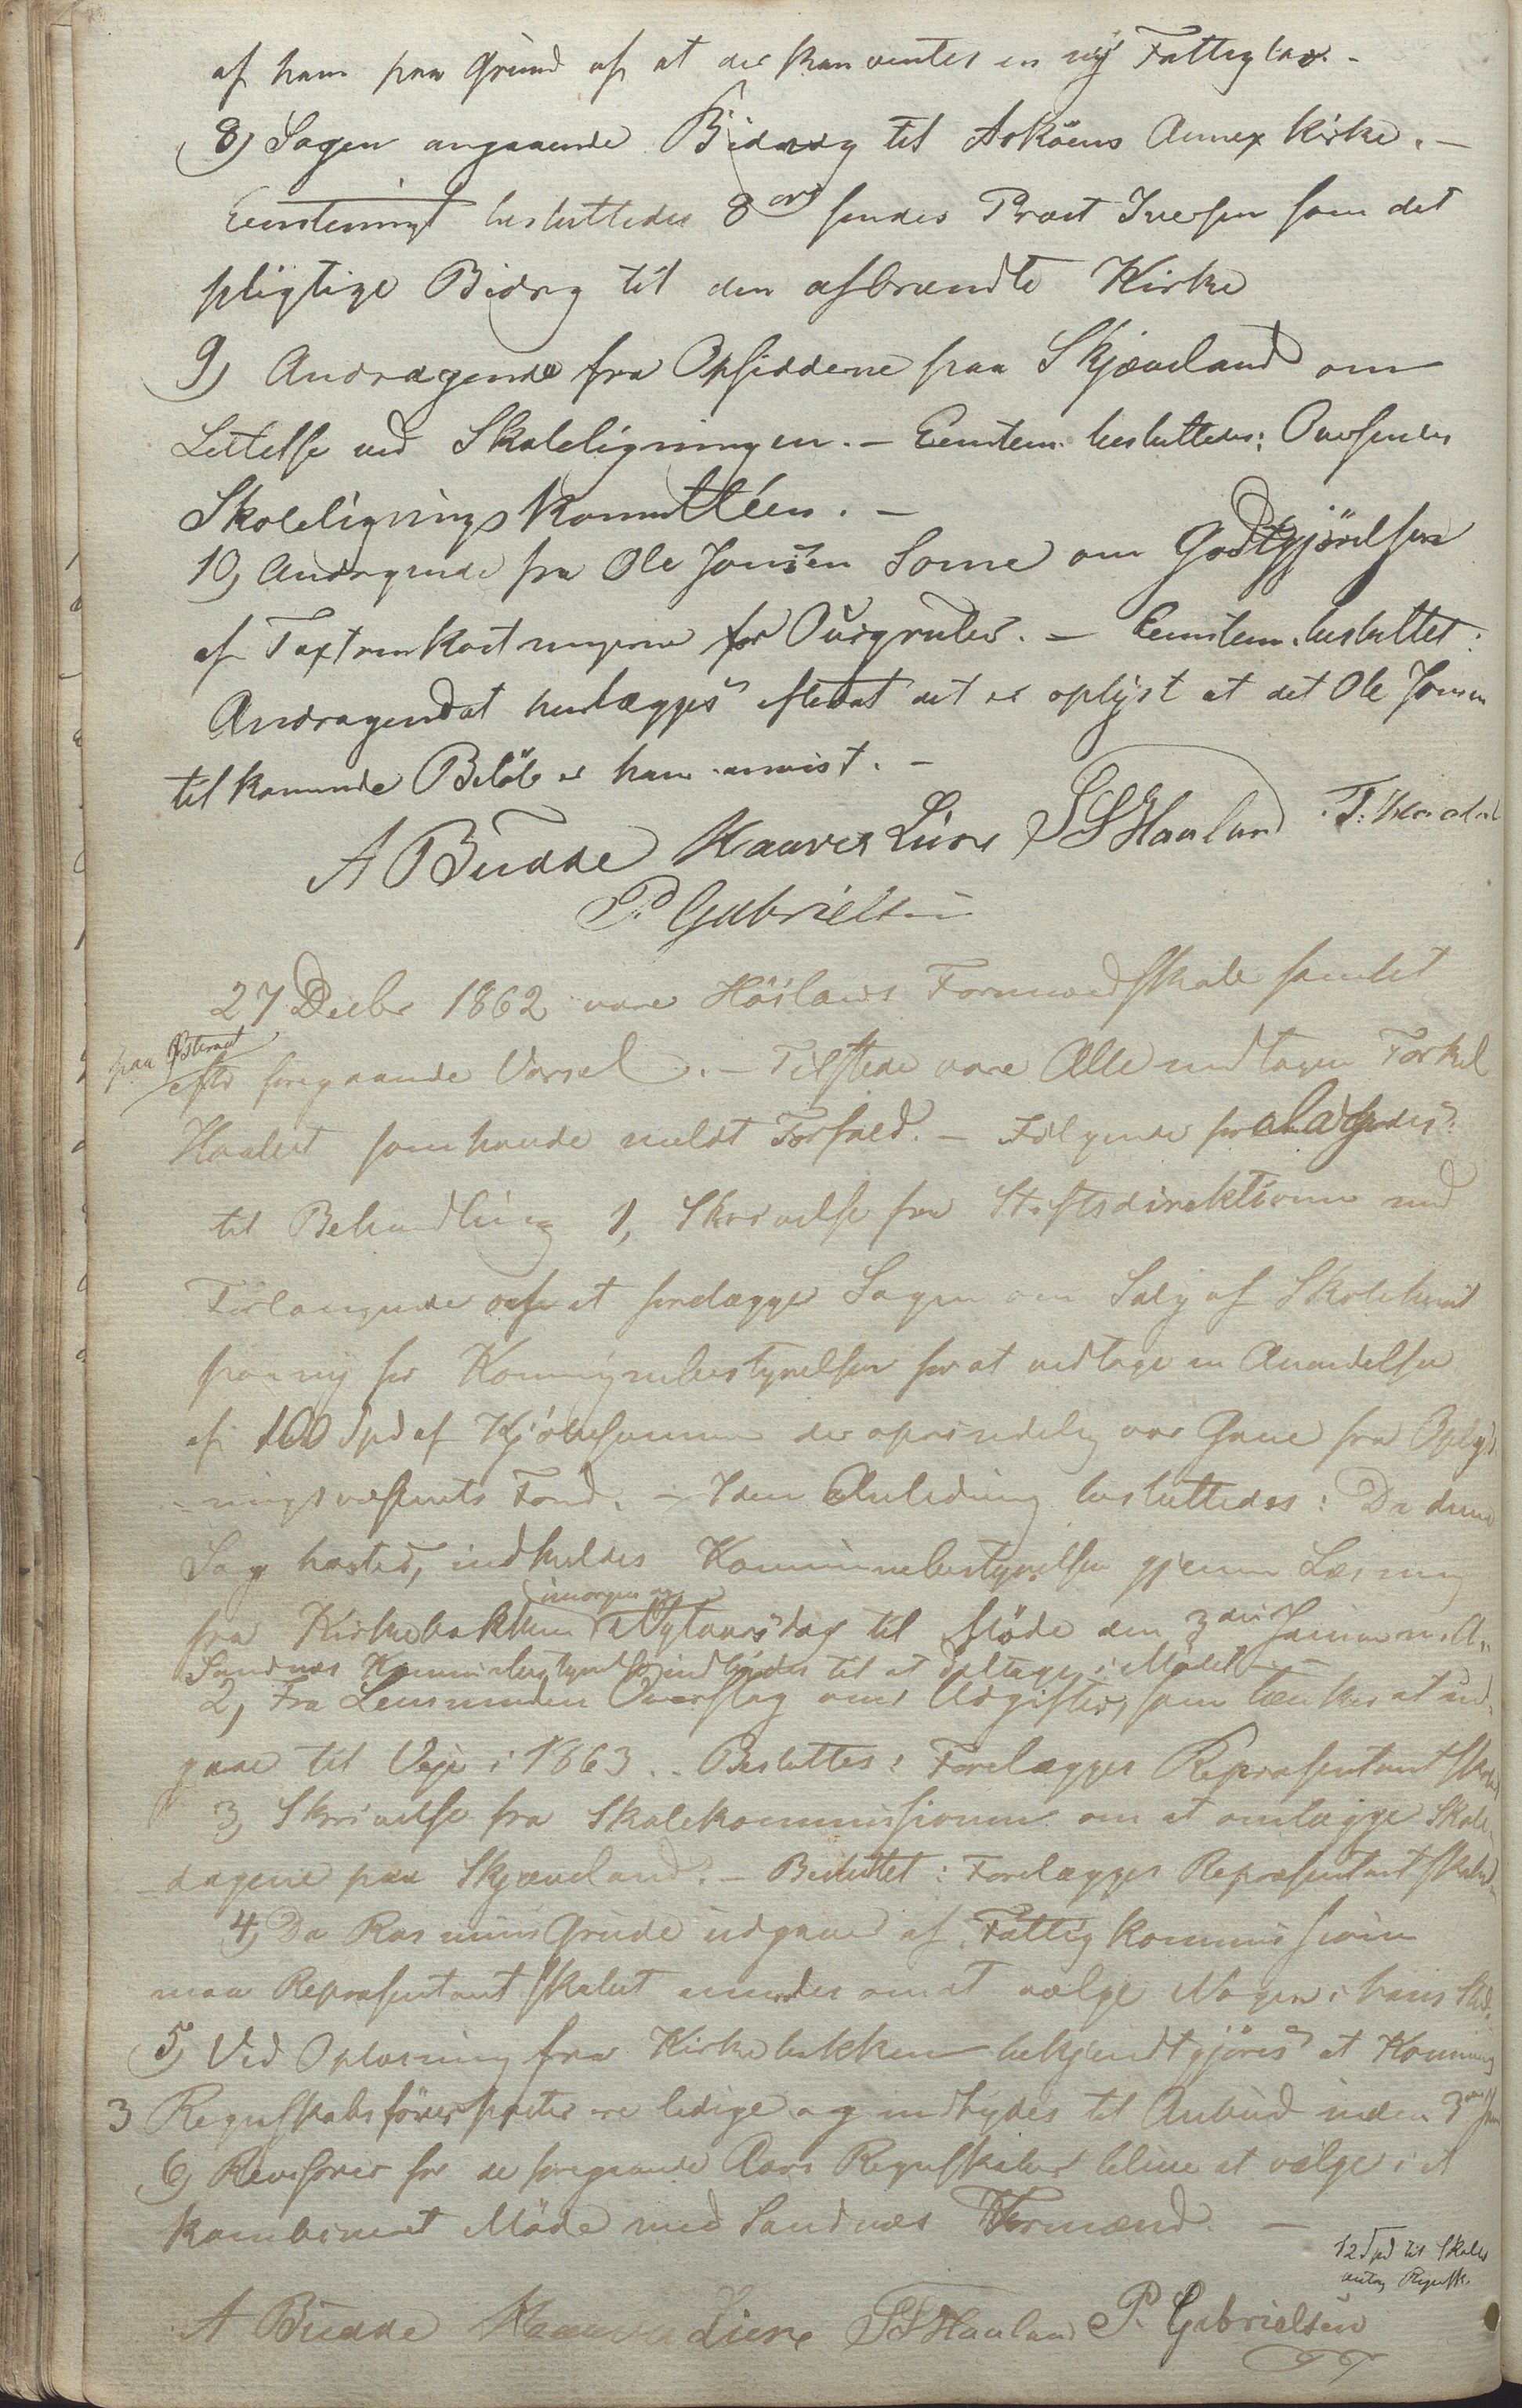 af ham paa Grund af at der kan ventes en ny Fattiglov. -
8) Sagen angaaende Bidrag til Askøens Annex Kirke. -
Eenstemigt besluttedes 8 ort sendes Provst Iversen som det
pligtige Bidrag til den afbrændte Kirke
9) Andragende fra Opsidderne paa Skjæveland om
Lettelse ved Skoleligningen. - Eenstem. besluttedes: Oversendes
Skoleligningskomitteen. -
10) Andragende fra Ole Jonsen Somme om Godtgjörelsen
af Taxtomkostningerne for - Eenstem. besluttet:
Andragendet henlægges efterat det er oplyst at det Ole Jonsen
tilkommende Belöb er ham anvist. -
A Budde Kaaver Lura S S Haaland T.
P Gabrielsen
27 Decbr 1862 vare Höilands Formandskab samlet
paa Østeraat
efter foregaaende Varsel. - Tilstede vare Alle undtagen Torkel
som havde meldt Forfald. - Følgende
til Behandling 1, Skrivelse fra Stiftsdirektionen med
Forlangende om at forelægge Sagen om Salg af Skolehuset
paany for Kommunebestyrelsen for at vedtage en Anvendelse
af 100 Spd af Kjöbesummen der oprindelig var Gave fra Oplys-
ningsvæsenets Fond. - I den Anledning besluttedes: Da denne
Sag haster, indkaldes Kommunebestyrelsen gjennem Læsning
imorgen og
fra Kirkebakken Nytaarsdag til Möde den 3die Januar n. A.
Sandnæs Kommunebestyrelse indbydes til at deltage i Mödet -
2, Fra Lensmanden Overslag over Udgifter, som tænkes at ud-
gaae til Veje i 1863. - Besluttes: Forelægges Repræsentantskabet
3, Skrivelse fra Skolekommissionen om at omlægge Skole-
dagene paa Skjæveland. - Besluttet: Forelægges Repræsentantskabet
4, Da Rasmus Grude udgaaer af Fattigkommissionen
maa Repræsentantskabet mindes om at vælge Nogen i hans Sted.
5, Vid Oplæsning fra Kirkebakken bekjendtgjöres at Kommunens
3 Regnskabsförerposter ere ledige og indbydes til Anbud inden 3die Jan
6, Revisorer for de foregaaende Aars Regnskaber blive at vælge i et
kombineret Möde med Sandnæs Formænd. -
12 Spd til Skoles
Regnsk.
A Budde Kaaver Lura S S Haaland P. Gabrielsen